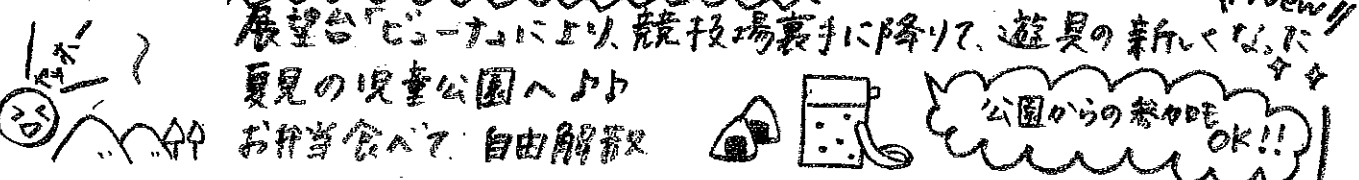 展望台「ビューナ」により、競技場裏手に降りて、遊具の新しくなった
夏見の児童公園へ♪♪
お弁当食べて、自由解散
公園からの参加も
OK!!
ヤッホー!